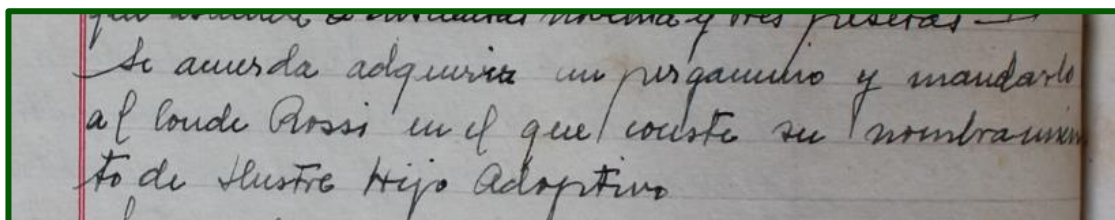 que asciende a doscientas noventa y tres pesetas —
Se acuerda adquirir un pergamino y mandarlo
al Conde Rossi en el que conste su nombramien
to de Ilustre Hijo Adoptivo